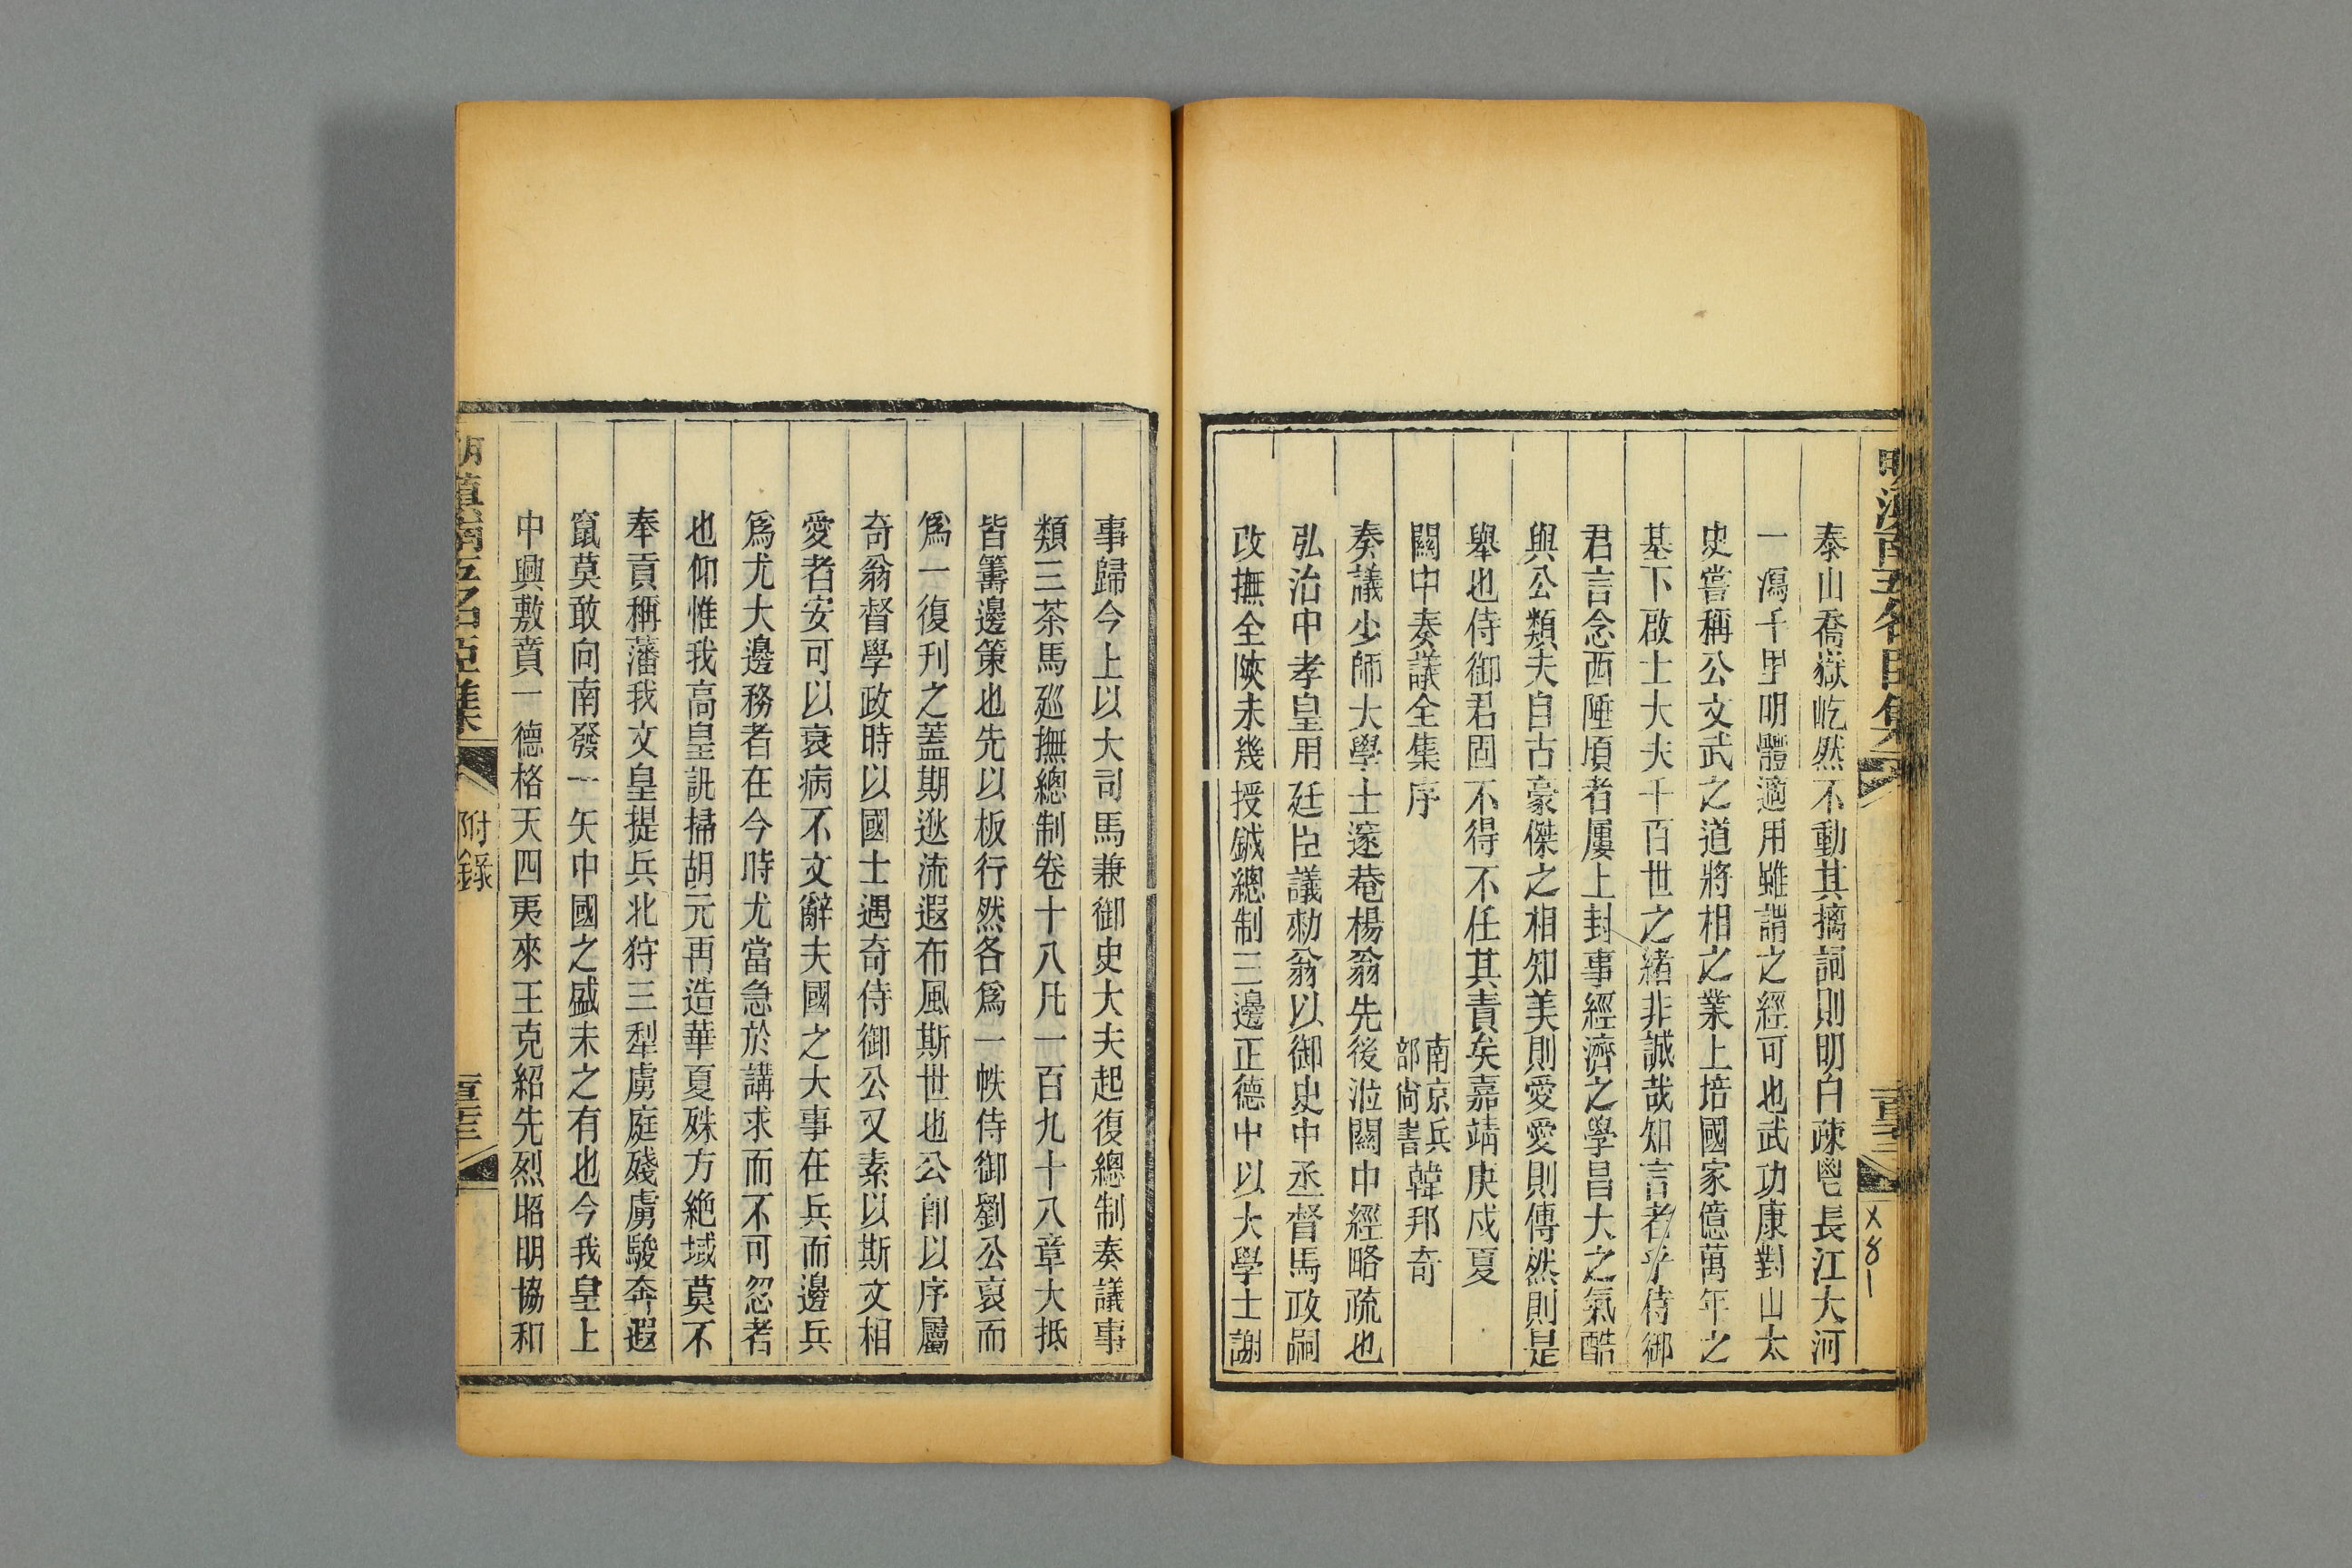 泰山喬嶽屹然不動其摛詞則明白疎鬯長江大河
一瀉千里明體適用雖謂之經可也武功康對山太
史嘗稱公文武之道將相之業上培國家億萬年之
基下啟士大夫千百世之緒非誠哉知言者乎侍御
君言念西陲頃者屢上封事經濟之學昌大之氣酷
與公類夫自古豪傑之相知美則愛愛則傳然則是
舉也侍御君固不得不任其責矣嘉靖庚戌夏
關中奏議全集序
南京兵
部尚書
韓邦奇
奏議少師大學士邃菴楊翁先後涖關中經略疏也
弘治中孝皇用廷臣議勑翁以御史中丞督馬政嗣
改撫全陝未幾授鉞總制三邊正德中以大學士謝
×81
事歸今上以大司馬兼御史大夫起復總制奏議事
類三茶馬廵撫總制卷十八凡一百九十八章大抵
皆籌邊策也先以板行然各爲一帙侍御劉公裒而
爲一復刊之蓋期逖流遐布風斯世也公卽以序屬
奇翁督學政時以國士遇奇侍御公又素以斯文相
愛者安可以衰病不文辭夫國之大事在兵而邊兵
爲尤大邊務者在今時尤當急於講求而不可忽者
也仰惟我高皇訊掃胡元再造華夏殊方絕域莫不
奉貢稱藩我文皇提兵北狩三犁虜庭殘虜駿奔遐
竄莫敢向南發一矢中國之盛未之有也今我皇上
中興敷賁一德格天四夷來王克紹先烈昭明協和
明滇南五名臣集
附錄